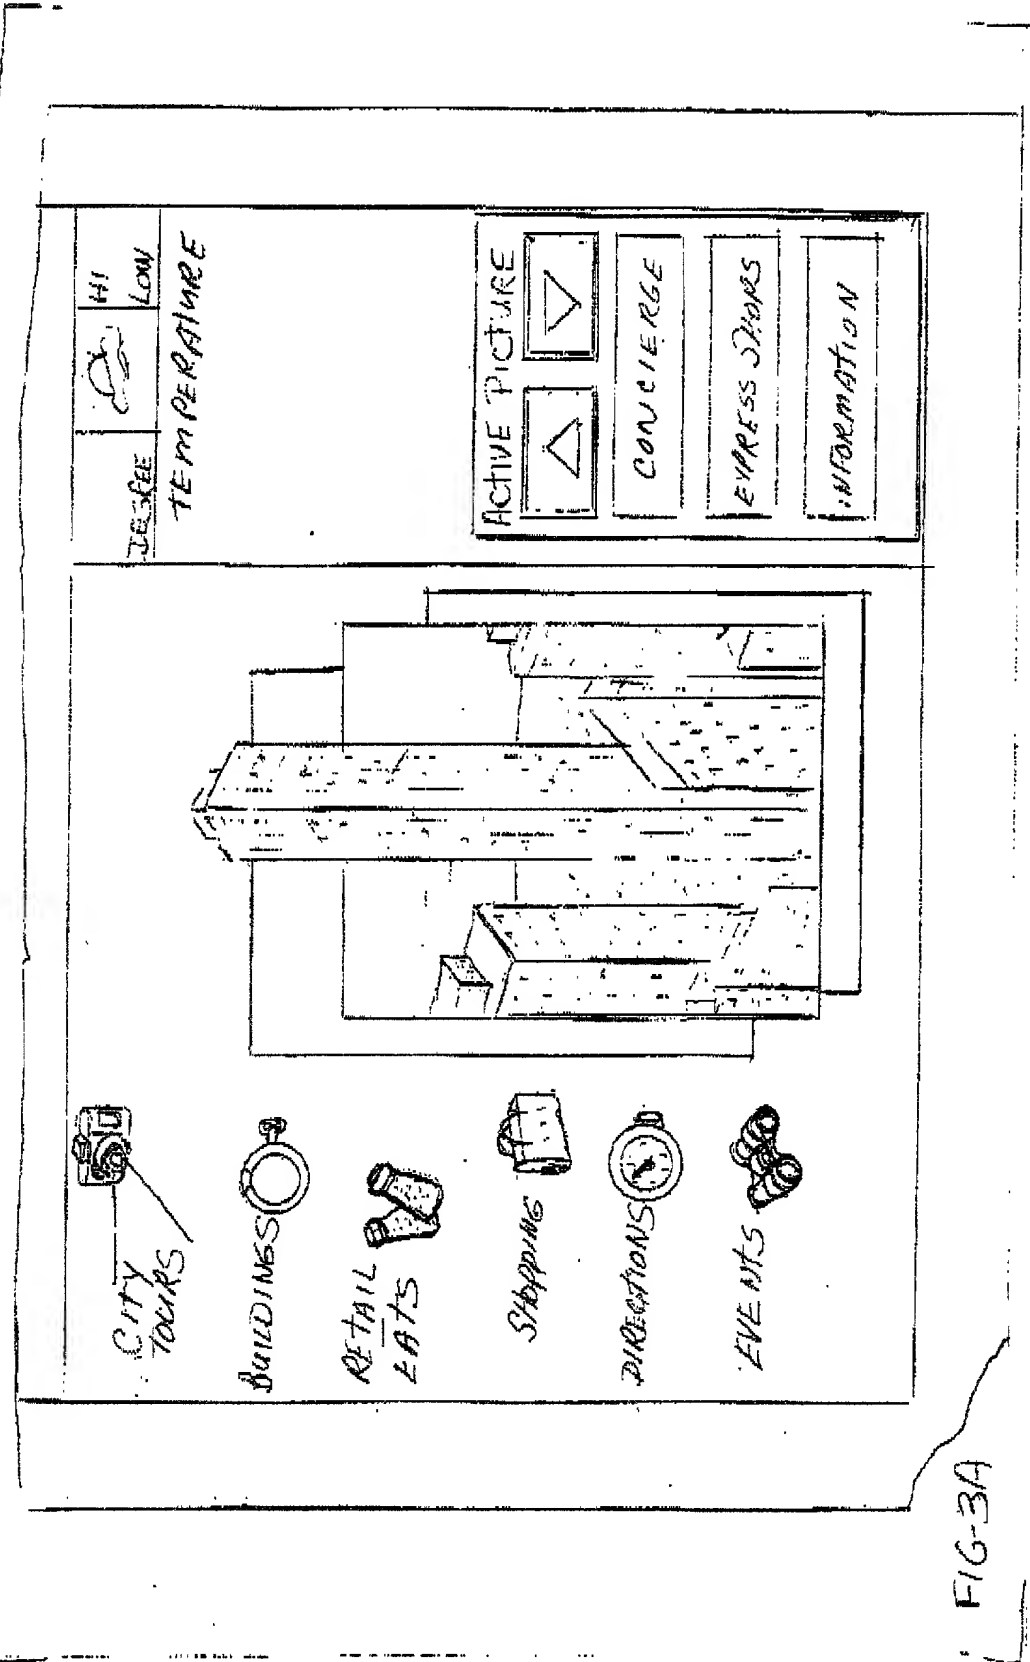 CITY
TOURS
BUILDINGS
RETAIL
EATS
SHOPPING
DIRECTIONS
EVENTS
HI
LOW
TEMPERATURE
ACTIVE PICTURE
CONCIERGE
EXPRESS SHOPS
INFORMATION
FIG-3A